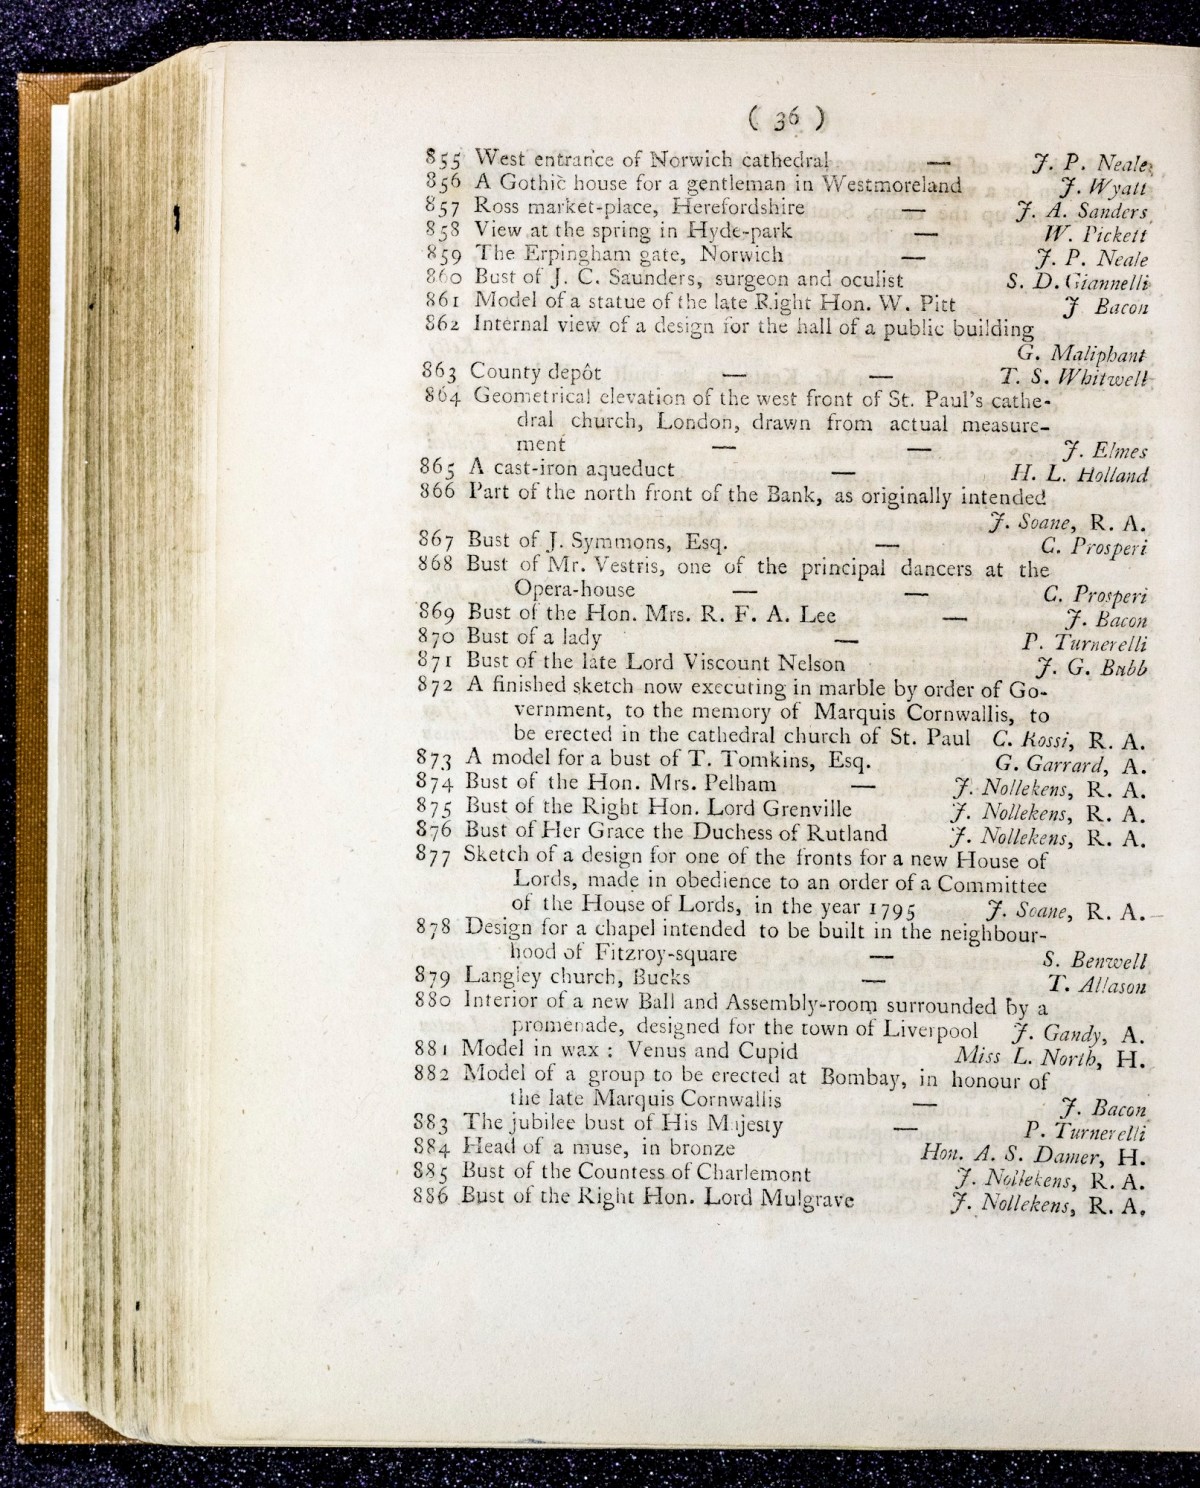 ( 36 )
855 West entrance of Norwich cathedral — J. P. Neale
856 A Gothic house for a gentleman in Westmoreland J. Wyatt
857 Ross market-place, Herefordshire — J. A. Sanders
858 View at the spring in Hyde-park — W. Pickett
859 The Erpingham gate, Norwich — J. P. Neale
860 Bust of J. C. Saunders, surgeon and oculist S. D. Giannelli
861 Model of a statue of the late Right Hon. W. Pitt J Bacon
862 Internal view of a design for the hall of a public building
G. Maliphant
863 County depôt — — T. S. Whitwell
864 Geometrical elevation of the west front of St. Paul's cathe-
dral church, London, drawn from actual measure-
ment — — J. Elmes
865 A cast-iron aqueduct — H. L. Holland
866 Part of the north front of the Bank, as originally intended
J. Soane, R. A.
867 Bust of J. Symmons, Esq. — C. Prosperi
868 Bust of Mr. Vestris, one of the principal dancers at the
Opera-house — — C. Prosperi
869 Bust of the Hon. Mrs. R. F. A. Lee — J. Bacon
870 Bust of a lady — P. Turnerelli
871 Bust of the late Lord Viscount Nelson J. G. Bubb
872 A finished sketch now executing in marble by order of Go-
vernment, to the memory of Marquis Cornwallis, to
be erected in the cathedral church of St. Paul C. Rossi, R. A.
873 A model for a bust of T. Tomkins, Esq. G. Garrard, A.
874 Bust of the Hon. Mrs. Pelham — J. Nollekens, R. A.
875 Bust of the Right Hon. Lord Grenville J. Nollekens, R. A.
876 Bust of Her Grace the Duchess of Rutland J. Nollekens, R. A.
877 Sketch of a design for one of the fronts for a new House of
Lords, made in obedience to an order of a Committee
of the House of Lords, in the year 1795 J. Soane, R. A.
878 Design for a chapel intended to be built in the neighbour-
hood of Fitzroy-square — S. Benwell
879 Langley church, Bucks — T. Allason
880 Interior of a new Ball and Assembly-room surrounded by a
promenade, designed for the town of Liverpool J. Gandy, A.
881 Model in wax : Venus and Cupid Miss L. North, H.
882 Model of a group to be erected at Bombay, in honour of
the late Marquis Cornwallis — J. Bacon
883 The jubilee bust of His Majesty — P. Turnerelli
884 Head of a muse, in bronze Hon. A. S. Damer, H.
885 Bust of the Countess of Charlemont J. Nollekens, R. A.
886 Bust of the Right Hon. Lord Mulgrave J. Nollekens, R. A.